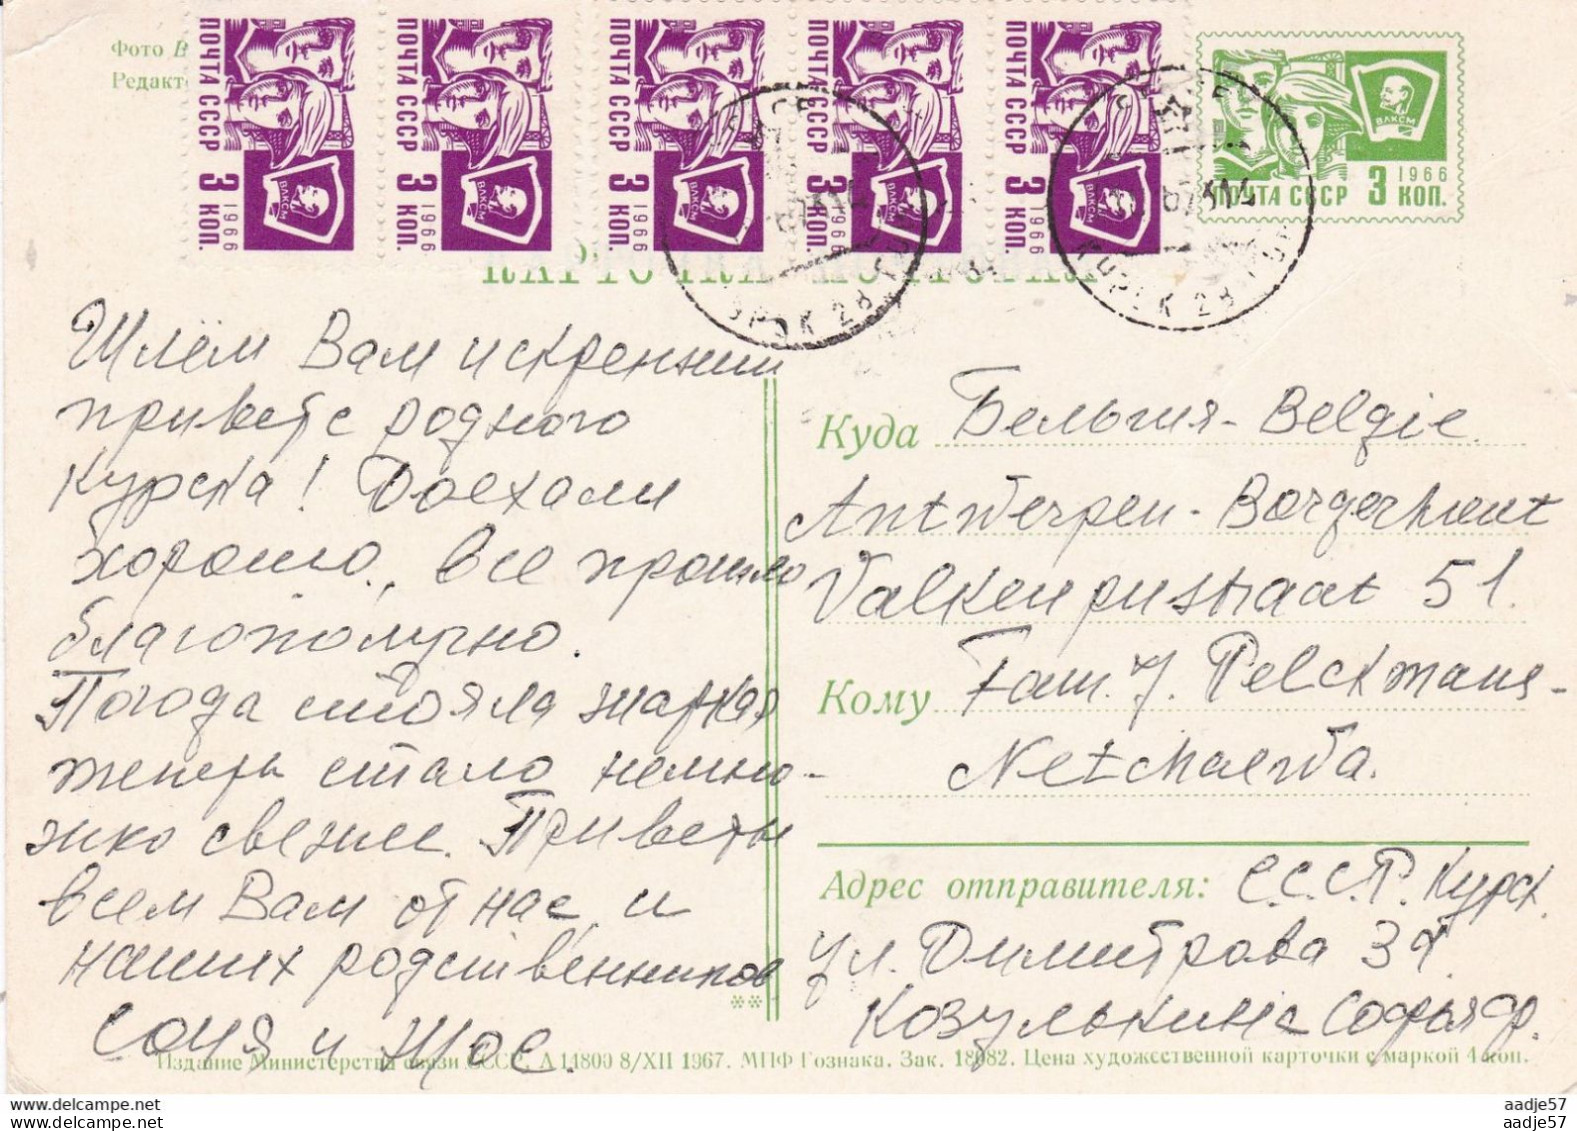 Фото В
Редакт
ПОЧТА СССР 3 КОП. 1966 ВЛКСМ
ПОЧТА СССР 3 КОП. 1966 ВЛКСМ
ПОЧТА СССР 3 КОП. 1966 ВЛКСМ
ПОЧТА СССР 3 КОП. 1966
ПОЧТА СССР 3 КОП. 1966
ВЛКСМ
1966
ПОЧТА СССР 3 КОП.
Шлём Вам искренний
привет с родного
Курска! Доехали
хорошо, все прошло
благополучно.
Погода стояла жаркая
теперь стало немно-
жко свежее. Приветы
всем Вам от нас и
наших родственников
Соня и
**
Куда Бельгия - Belgie
Antwerpen - Borgerhout
Valkenpustraat 51.
Кому Fam. J. Pelckmans -
Netchaewa.
Адрес отправителя: С.С.С.Р. Курск.
ул. Димитрова
Козулькина Софья
Издание Министерства связи СССР. А 14800 8/XII 1967. МПФ Гознака. Зак. 18082. Цена художественной карточки с маркой 4 коп.
aadje57
aadje57